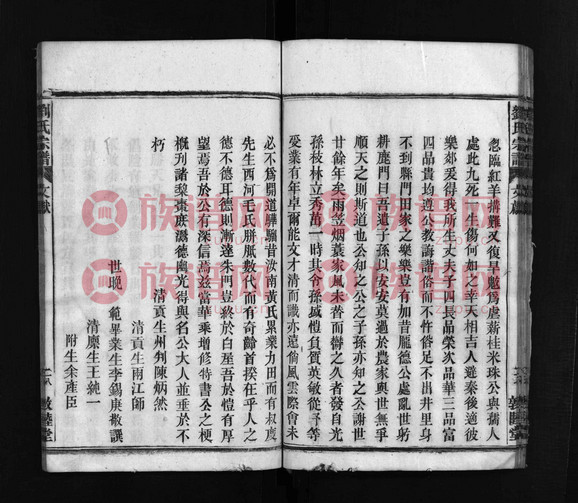 劉氏宗譜
文獻
忽臨紅羊搆難又復旱魃為虐薪桂米珠公與孺人
處此九死一生傷何如之幸天相吉人避秦後適彼
樂郊爰得我所生丈夫子四長品榮次品華三品富
四品貴均遵公教誨謹俗而不忮俗足不出井里身
不到縣門田家之樂樂豈有加昔龐德公處亂世躬
耕鹿門曰吾遺子孫以安安莫過於農家與世無爭
順天之則斯道也公知之公之子孫亦知之公謝世
廿餘年矣雨笠烟蓑家風未替而磻之久者發自光
孫枝林立秀萬一時其令孫盛愷負質英敏從予等
受業有年卓爾能文才清而識亦遠倘風雲際會未
敦睦堂
必不為開道驊騮昔汝南黃氏累業力田而有叔度
先生西河毛氏胼胝數代而有奇齡首揆在乎人之
德不德耳德則漸達朱門豈終於白屋吾於愷有厚
望焉吾於公有深信焉茲當華乘增修特書公之梗
概刊諸棃棗庶潛德幽光得與名公大人並垂於不
朽
清貢生州判陳炳然
清貢生雨江師
世晚 範畢業生李錫庚敬譔
清廩生王純一
附生余產臣
劉氏宗譜
文獻
敦睦堂
族譜網